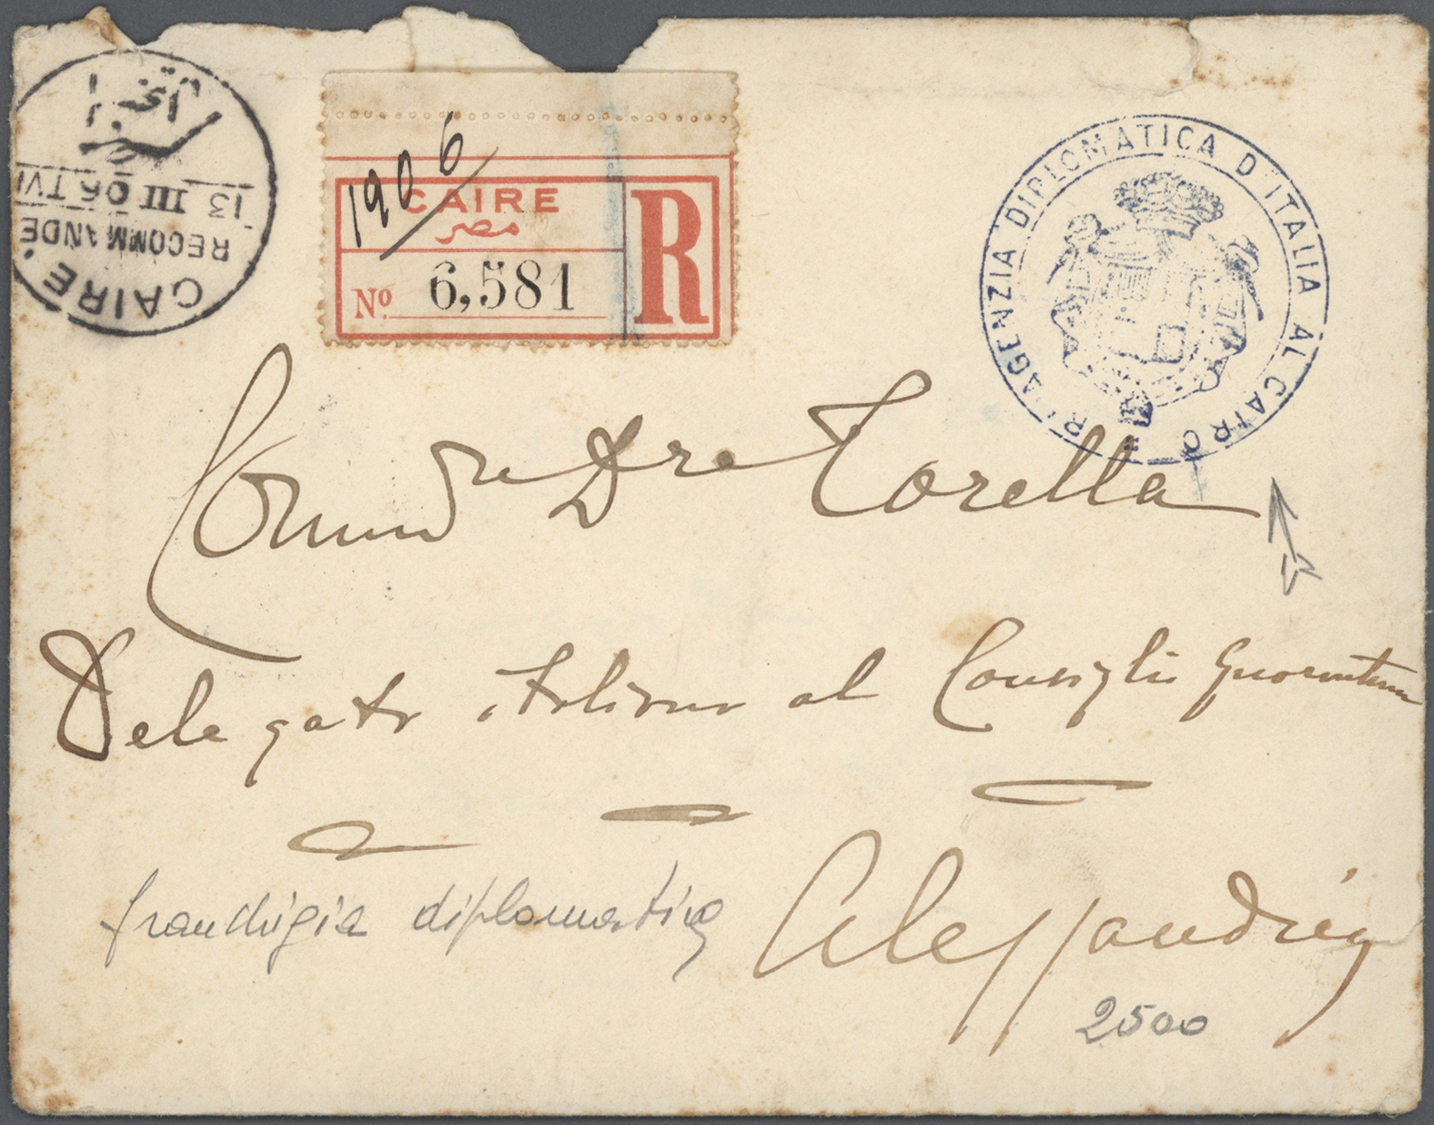 CAIRE.
RECOMMANDE
13 III 06 TVI
1906
CAIRE
مصر
Nº 6,581
R
Rª AGENZIA DIPLOMATICA D'ITALIA AL CAIRO
Torella
Delegato italiano al Consiglio
Alessandria
franchigia diplomatica
2500